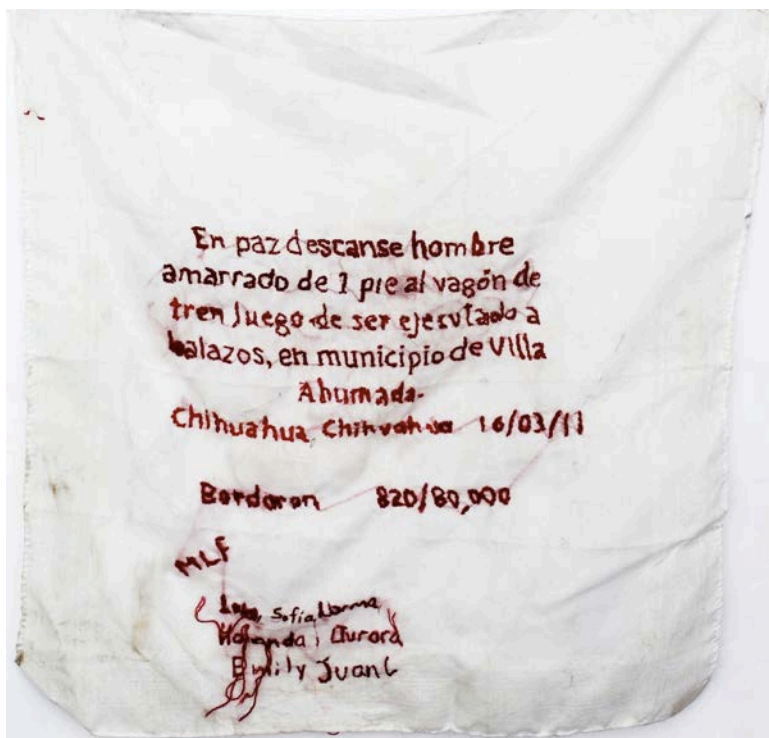 En paz descanse hombre
amarrado de 1 pie al vagón de
tren luego de ser ejecutado a
balazos, en municipio de Villa
Ahumada.
Chihuahua, Chihuahua 16/03/11
Bordaron 820/80,000
MLF
Sofia, Norma
Aurora
Emily Juan C